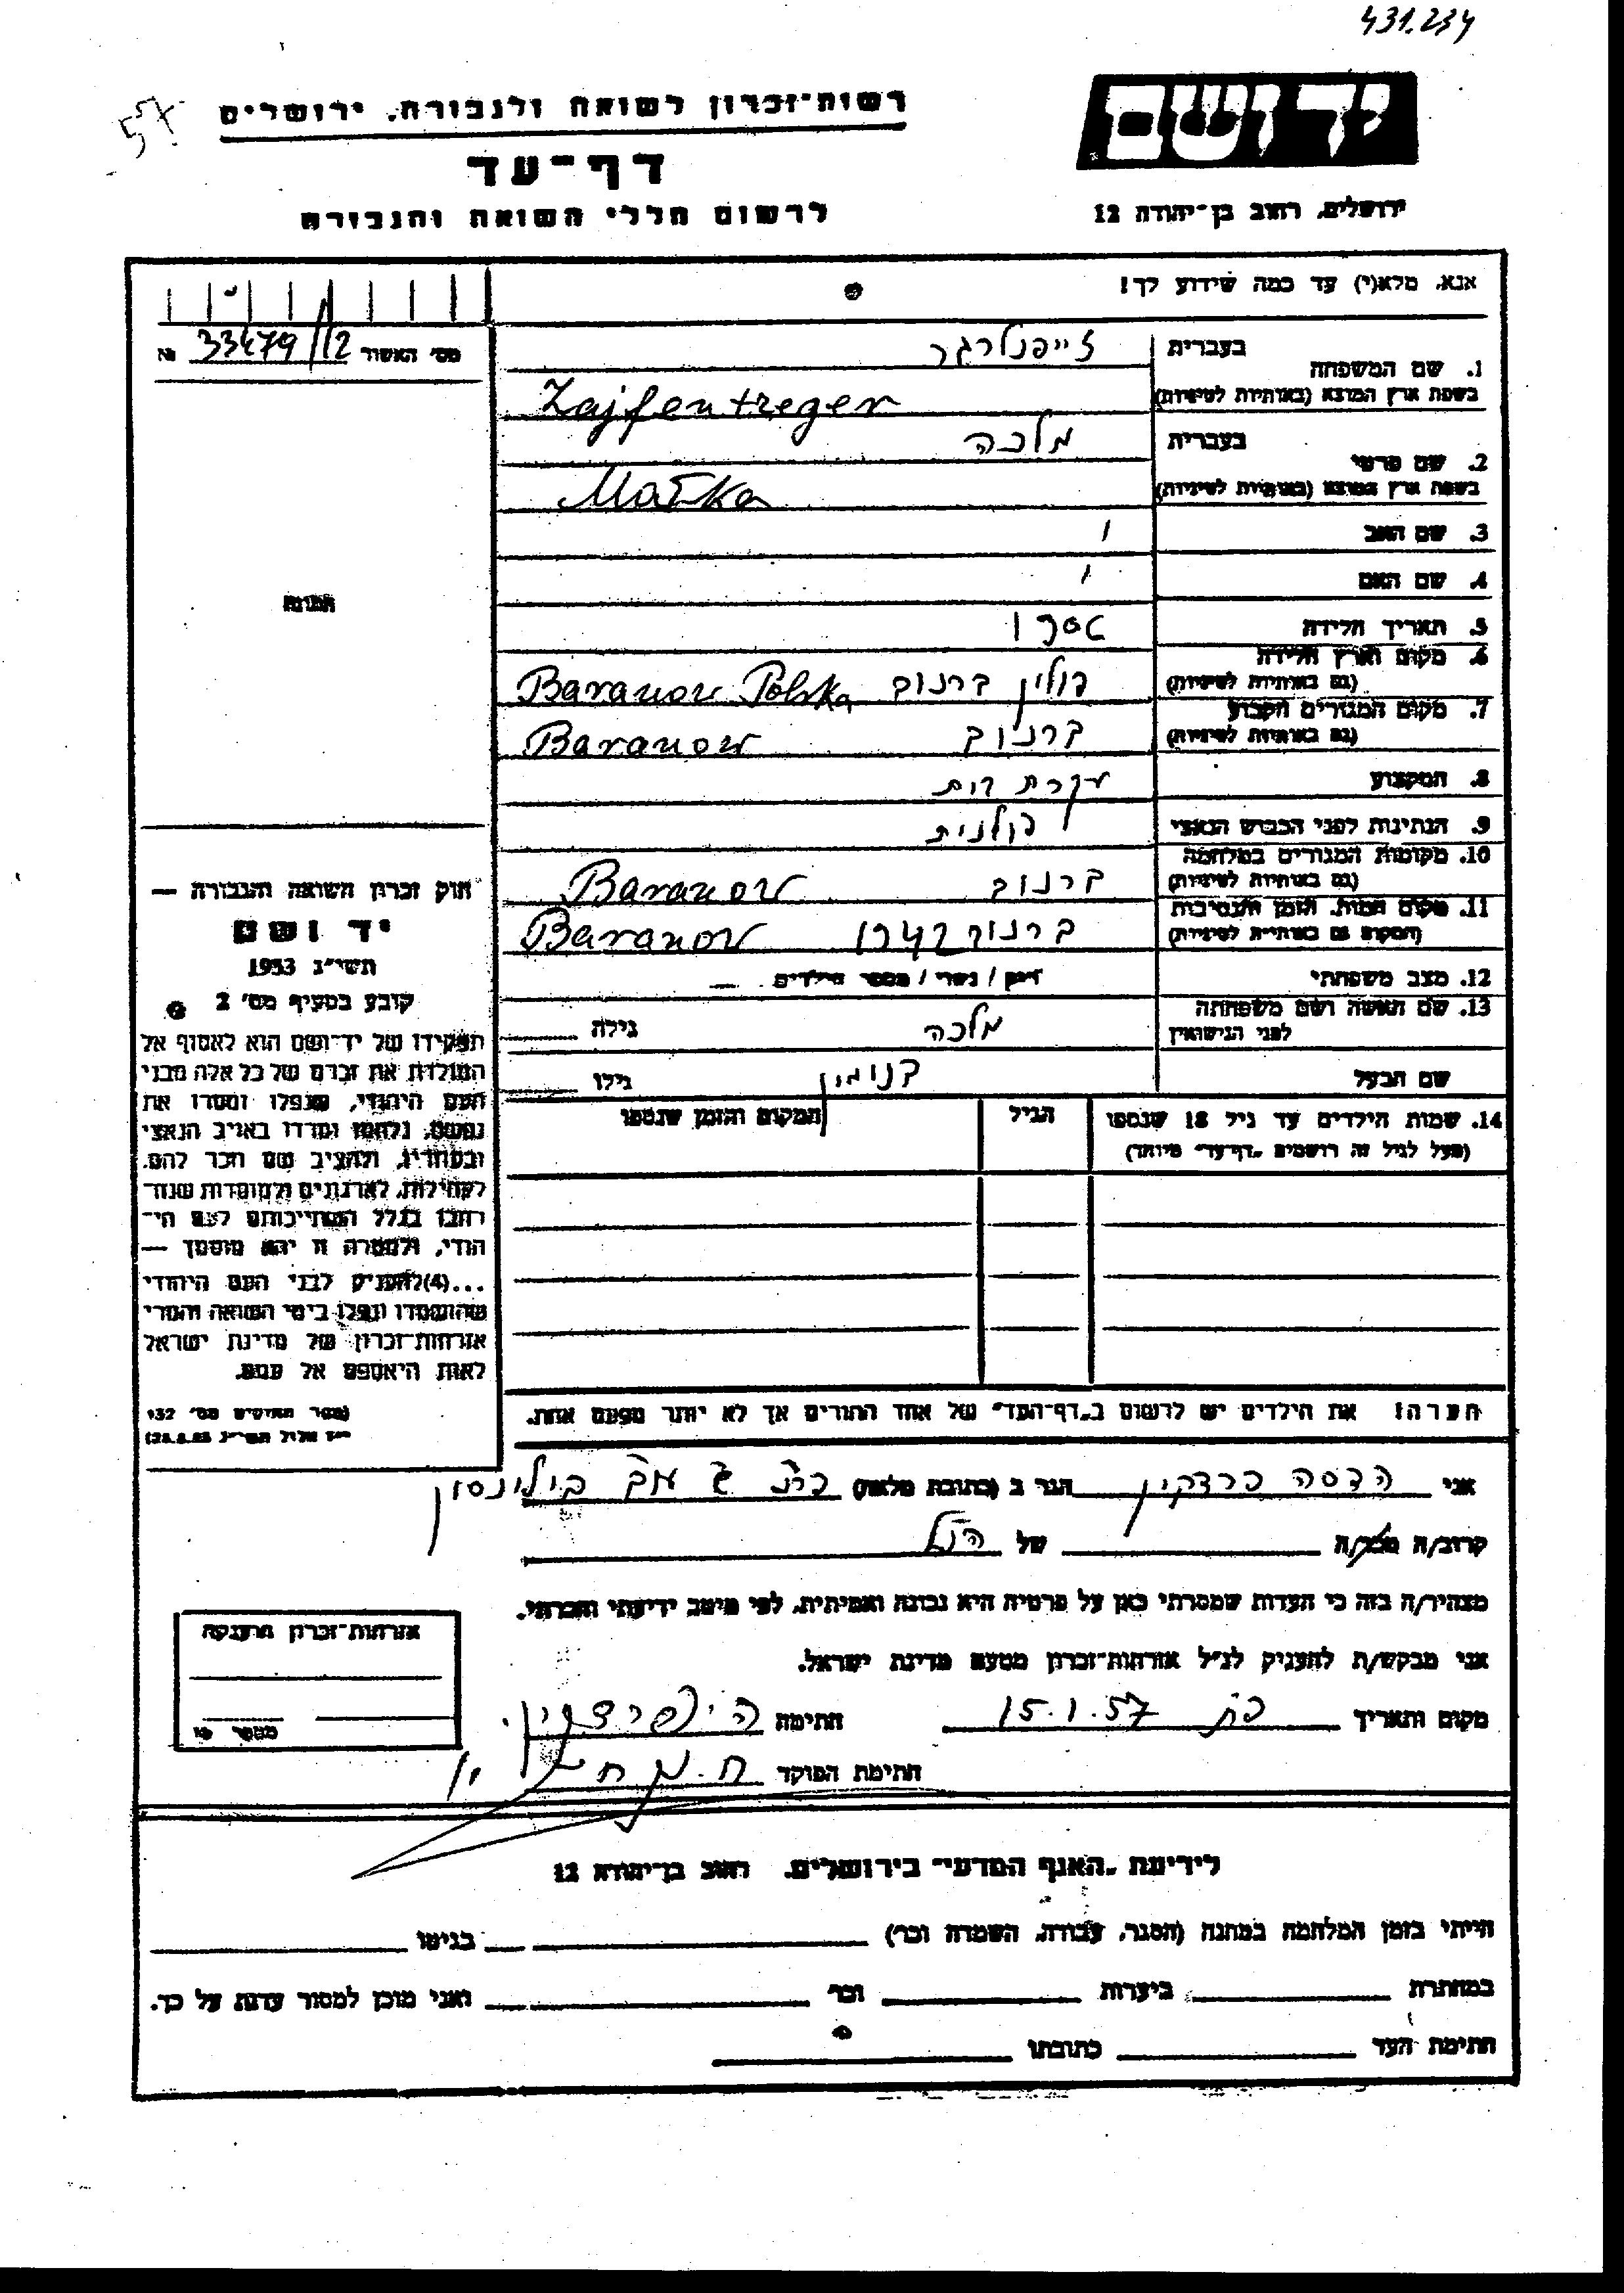 431.234
57
רשות-זכרון לשואה ולגבורה, ירושלים
יד ושם
דף-עד
לרשום חללי השואה והגבורה
ירושלים, רחוב בן-יהודה 12
אנא, מלא(י) עד כמה שידוע לך!
מס' האשור 33479/12 №
1. שם המשפחה
בעברית
בשפת ארץ המוצא (באותיות לטיניות)
Zajfentreger
2. שם פרטי
בעברית מלכה
בשפת ארץ המוצא (באותיות לטיניות)
Małka
3. שם האב
4. שם האם
5. תאריך הלידה
6. מקום וארץ הלידה
(גם באותיות לטיניות)
פולין ברנוב Baranow Polska
7. מקום המגורים הקבוע
(גם באותיות לטיניות)
ברנוב Baranow
8. המקצוע
עקרת בית
9. הנתינות לפני הכבוש הנאצי
פולנית
10. מקומות המגורים במלחמה
(גם באותיות לטיניות)
ברנוב Baranow
11. מקום המות, הזמן והנסיבות
(המקום גם באותיות לטיניות)
ברנוב 1942 Baranow
12. מצב משפחתי
רווק / נשוי / מספר הילדים —
13. שם האשה ושם משפחתה
לפני הנישואין
מלכה
גילה
שם הבעל
בנימין
גילו
14. שמות הילדים עד גיל 18 שנספו
(מעל לגיל זה רושמים "דף-עד" מיוחד)
הגיל
המקום והזמן שנספו
תמונה
חוק זכרון השואה והגבורה —
יד ושם
תשי"ג 1953
קובע בסעיף מס' 2
תפקידו של יד-ושם הוא לאסוף אל
המולדת את זכרם של כל אלה מבני
העם היהודי, שנפלו ומסרו את
נפשם, נלחמו ומרדו באויב הנאצי
ובעוזריו, ולהציב שם וזכר להם,
לקהילות, לארגונים ולמוסדות שנח־
רבו בגלל השתייכותם לעם הי־
הודי, ולמטרה זו יהא מוסמך —
...(4) להעניק לבני העם היהודי
שהושמדו ונפלו בימי השואה והמרי
אזרחות-זכרון של מדינת ישראל
לאות היאספם אל עמם.
(ספר החוקים מס' 132
י"ז אלול תשי"ג 28.8.53)
הערה! את הילדים יש לרשום ב"דף-העד" של אחד ההורים אך לא יותר מפעם אחת.
אני הדסה פרצקין הגר ב (כתובת מלאה)
קרוב/ה מכר/ה של הנ"ל
מצהיר/ה בזה כי העדות שמסרתי כאן על פרטיה היא נכונה ואמיתית, לפי מיטב ידיעתי והכרתי.
אני מבקש/ת להעניק לנ"ל אזרחות-זכרון מטעם מדינת ישראל.
מקום ותאריך פת 15.1.57 חתימה
חתימת הפוקד
אזרחות-זכרון הוענקה
מספר №
לידיעת "האגף המדעי" בירושלים, רחוב בן-יהודה 12
הייתי בזמן המלחמה במחנה (הסגר, עבודה, השמדה וכו') בגיטו
במחתרת ביערות וכו' ואני מוכן למסור עדות על כך.
חתימת העד כתובתו